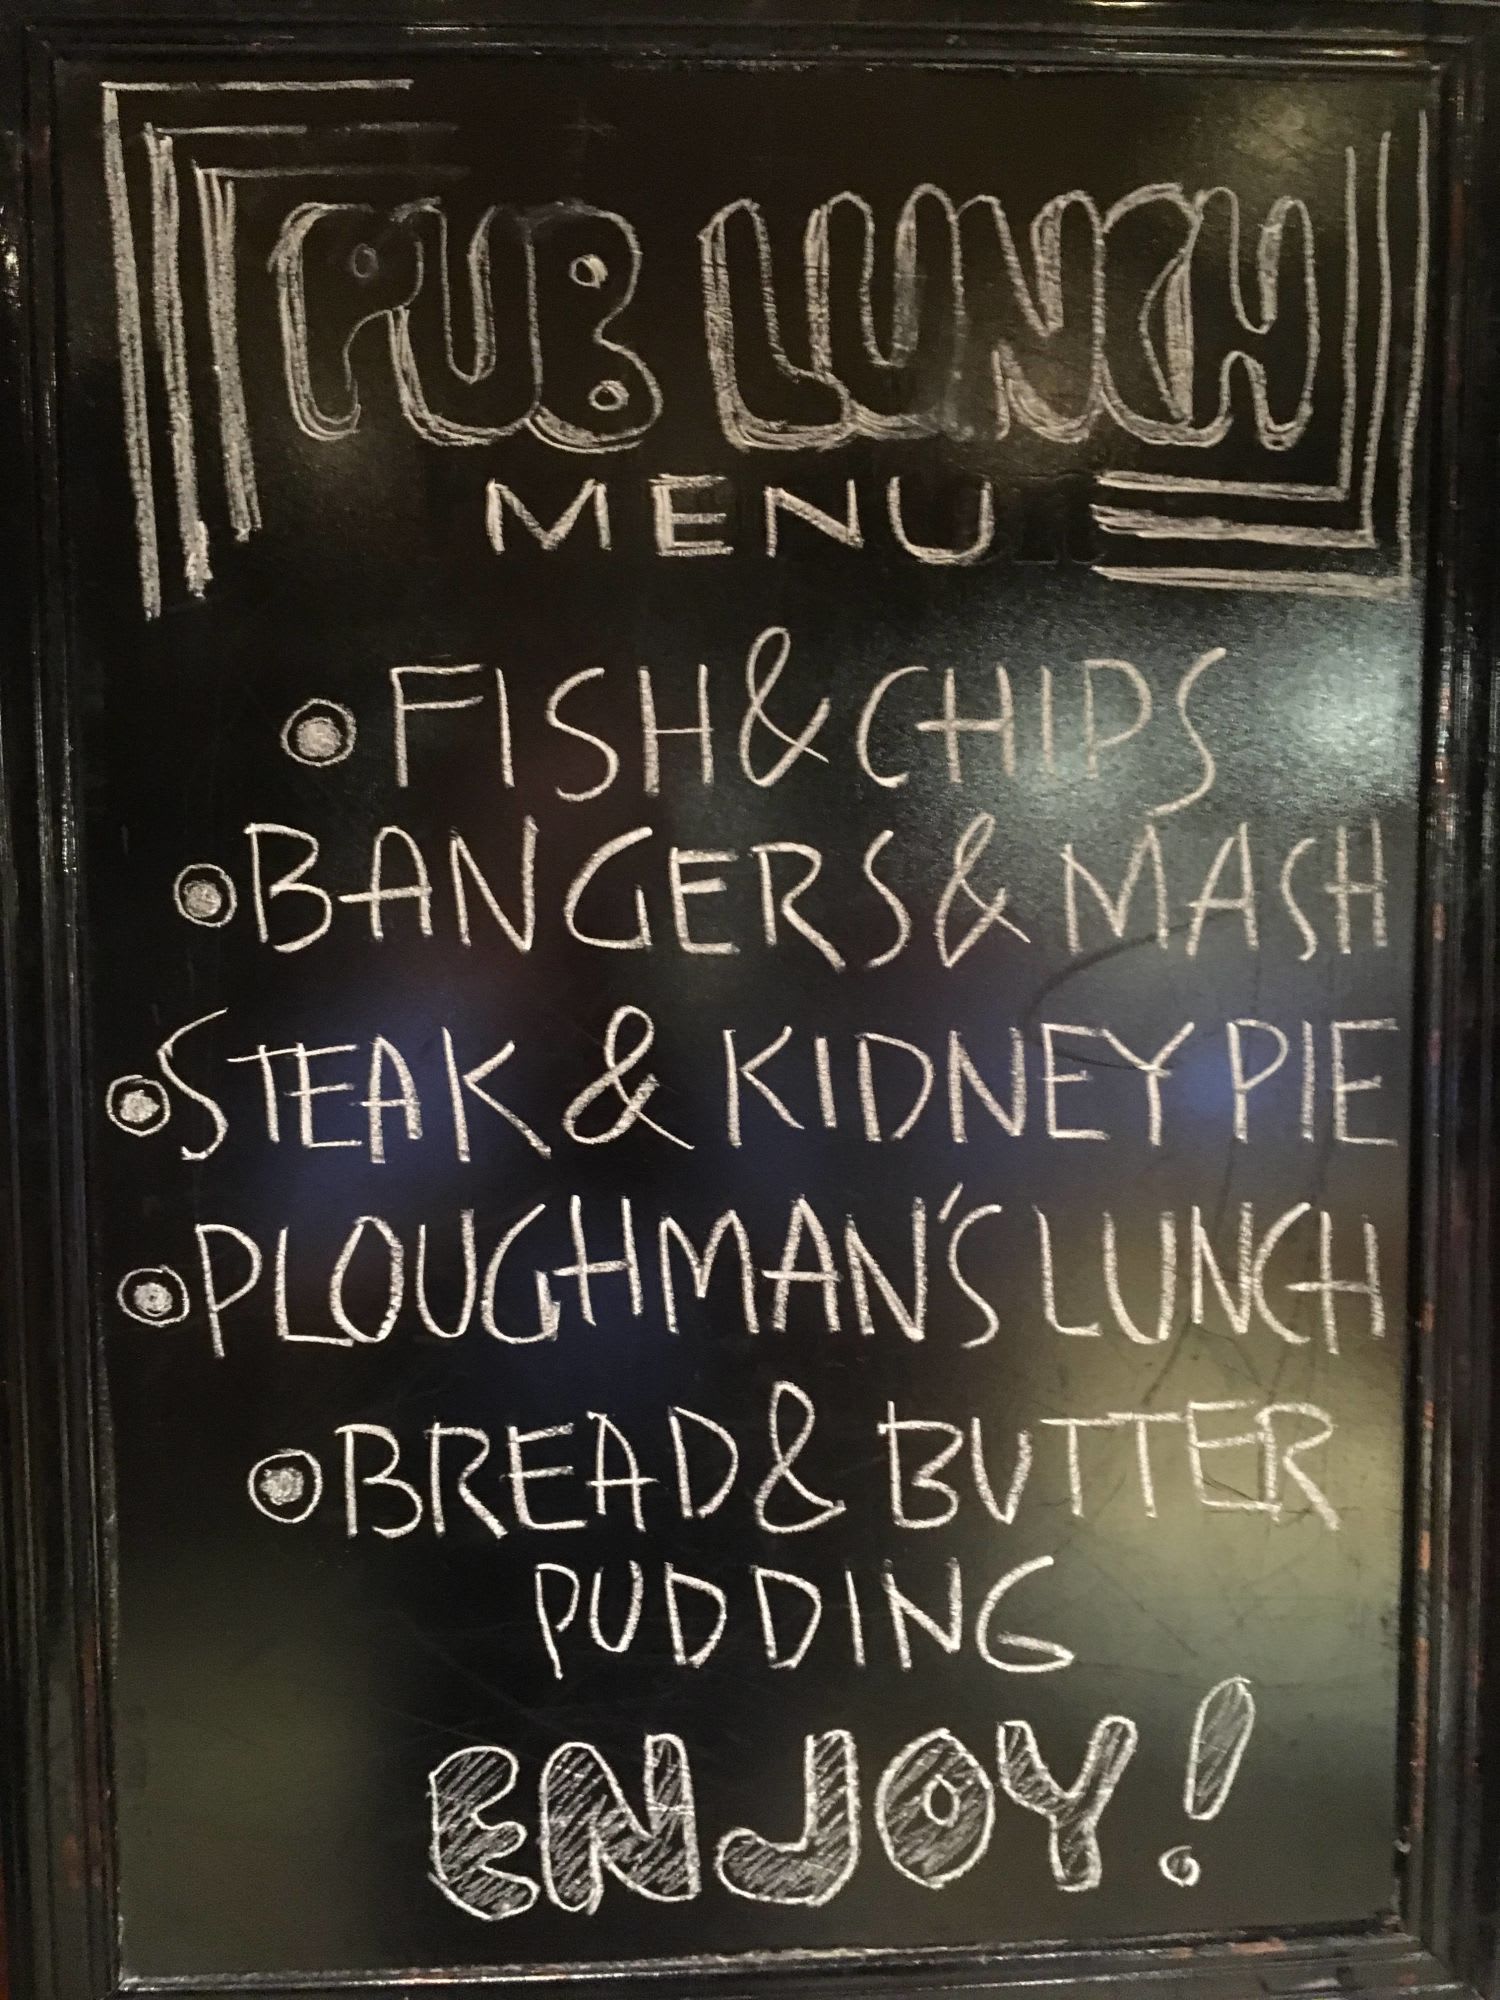 PUB LUNCH
MENU
FISH & CHIPS
BANGERS & MASH
STEAK & KIDNEY PIE
PLOUGHMAN'S LUNCH
BREAD & BUTTER
PUDDING
ENJOY!